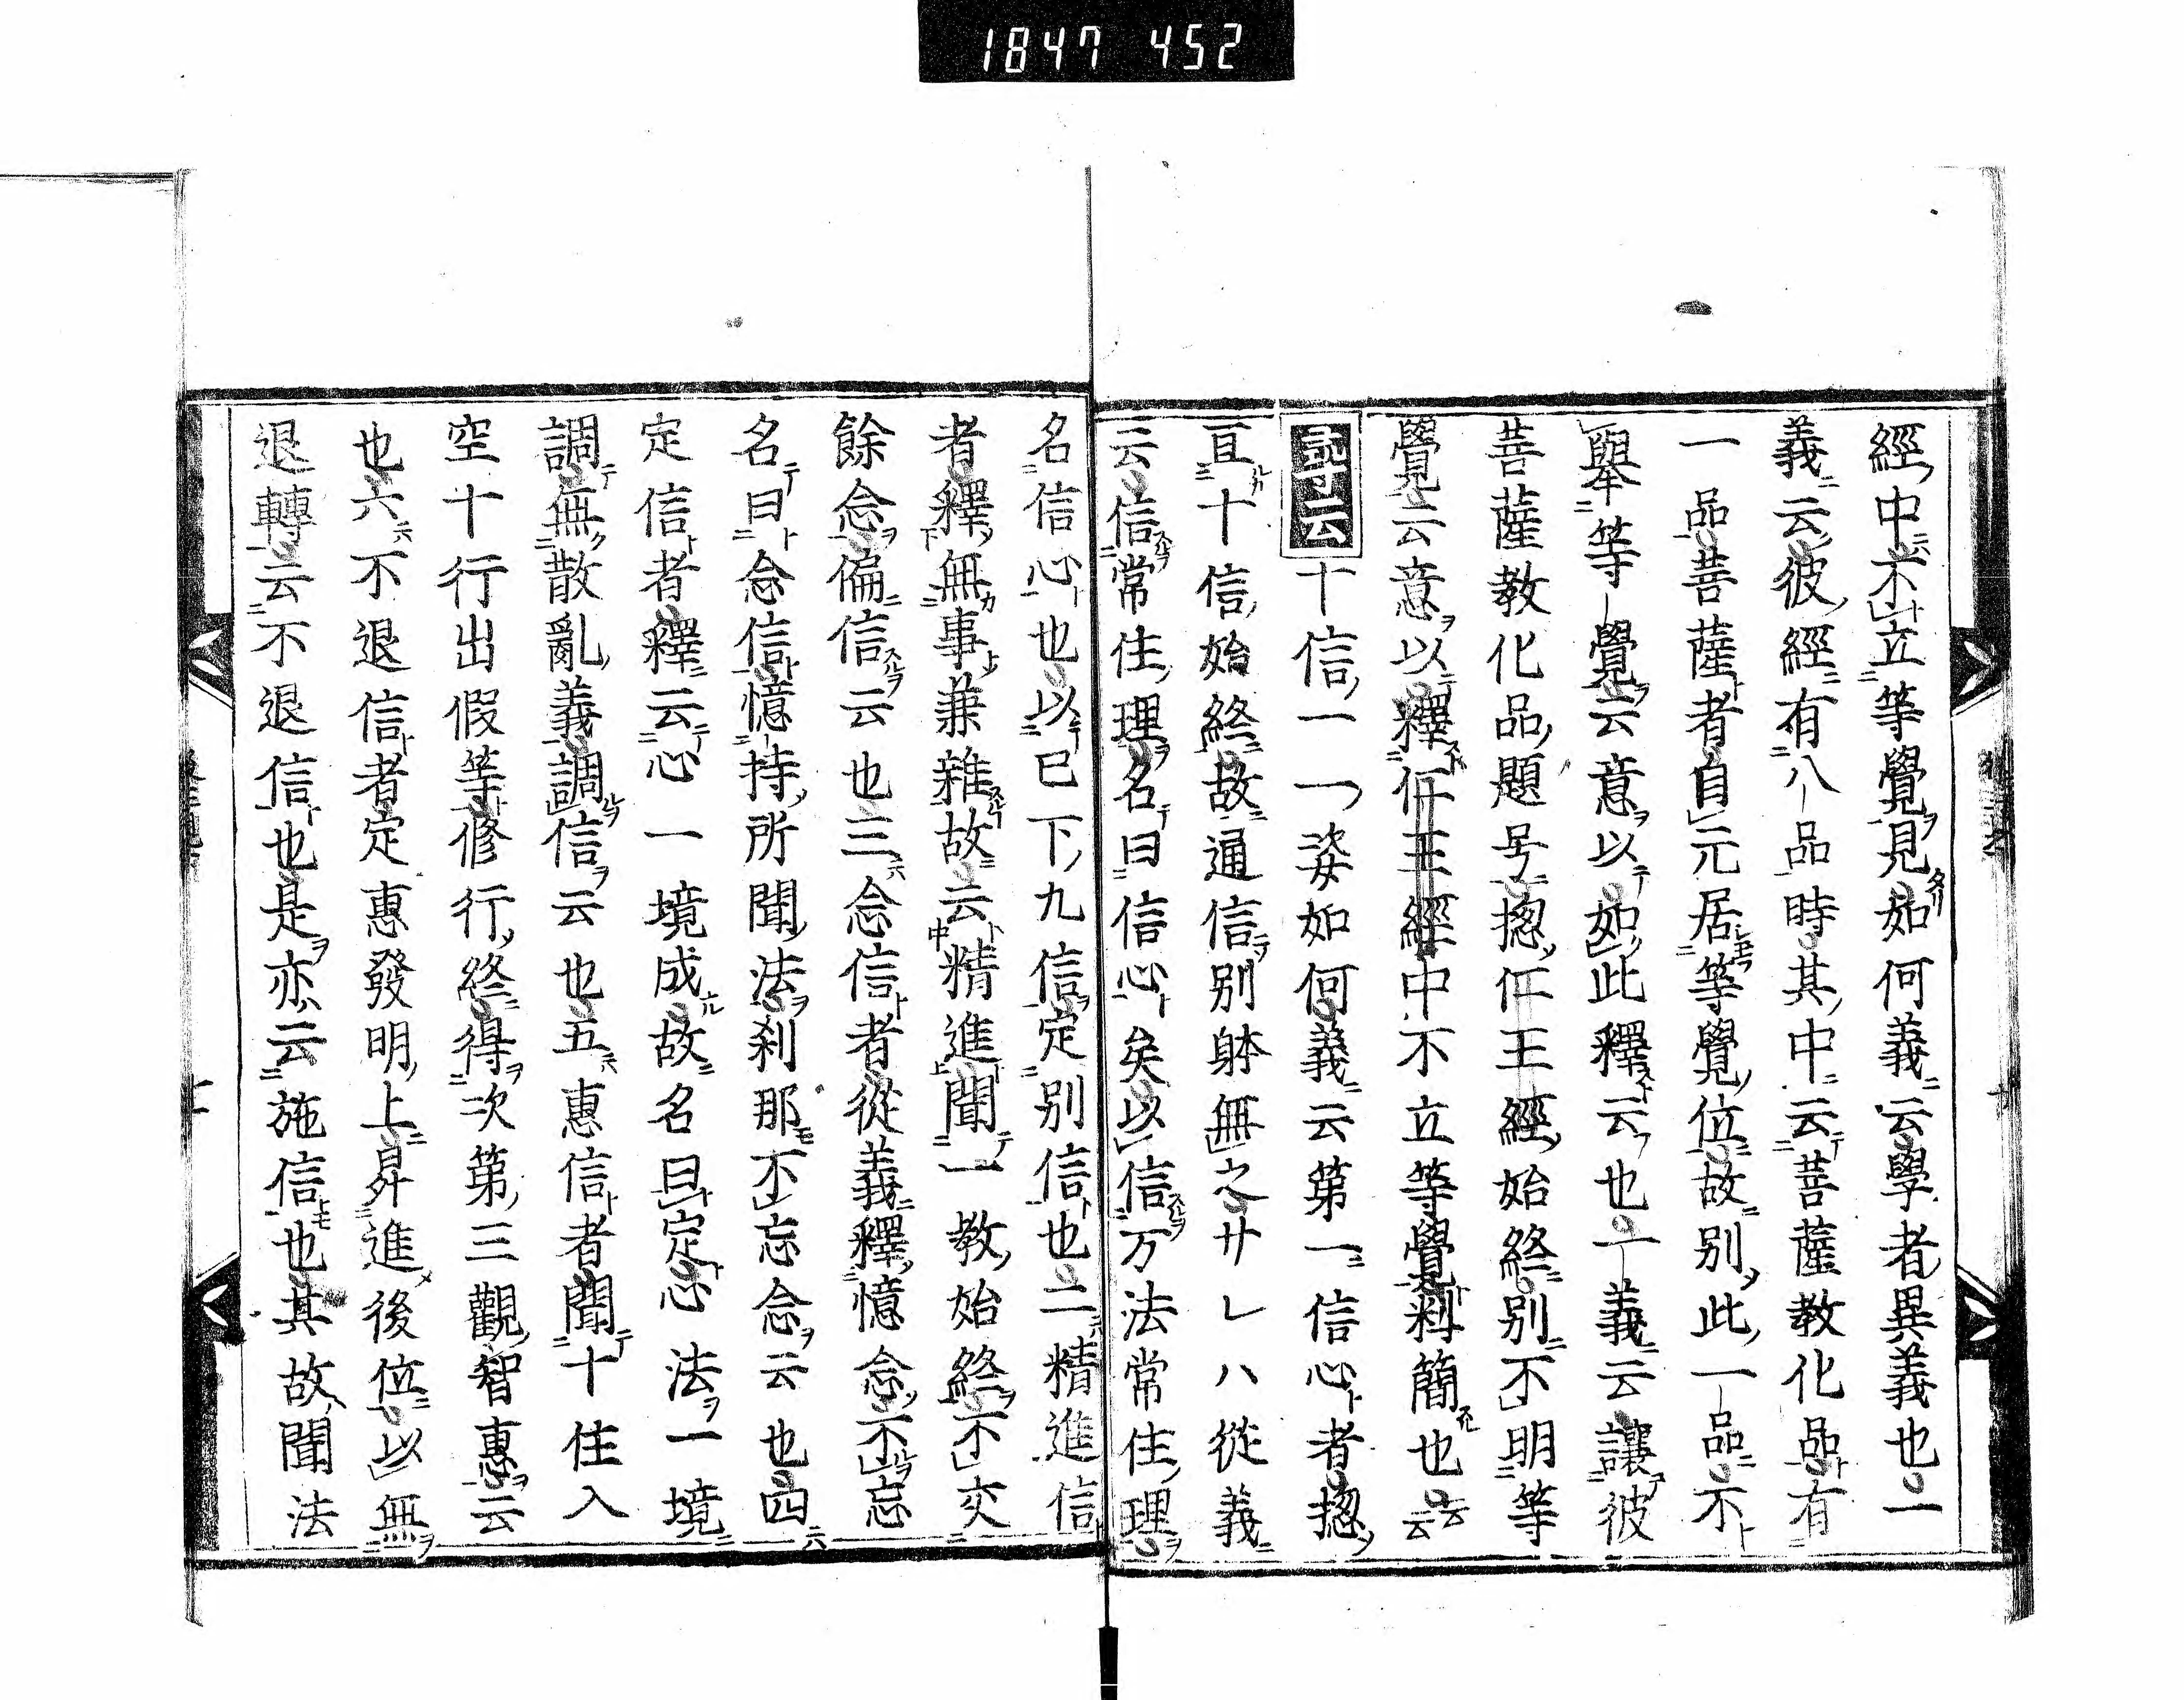 1847 452
經中不立等覺見如何義云學者異義也一
義云彼經有八品時其中云菩薩教化品有
一品菩薩者自元居等覺位故別此一品不
舉等覺云意以如此釋云也一義云讓彼
菩薩教化品題号揔仁王經始終別不明等
覺云意以釋仁王經中不立等覺料簡也云云
記十云十信一一姿如何義云第一信心者揔
亘十信始終故通信別躰無之廿レハ從義
云信常住理名曰信心矣以信万法常住理
名信心也以已下九信定別信也二精進信
者釋無事兼雜故云精進聞一教始終不交
餘念偏信云也三念信者從義釋憶念不忘
名曰念信憶持所聞法刹那不忘念云也四
定信者釋云心一境成故名曰定心法一境
調無散亂義調信云也五惠信者聞十住入
空十行出假等修行終得次第三觀智惠云
也六不退信者定惠發明上昇進後位以無
退轉云不退信也是亦云施信也其故聞法